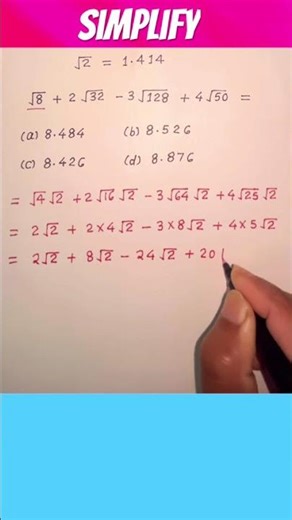 SIMPLIFY
√2 = 1.414
√8 + 2√32 - 3√128 + 4√50 =
(a) 8.484 (b) 8.526
(c) 8.426 (d) 8.876
= √4 √2 + 2√16 √2 - 3√64 √2 + 4√25 √2
= 2√2 + 2×4√2 - 3×8√2 + 4×5√2
= 2√2 + 8√2 - 24√2 + 20